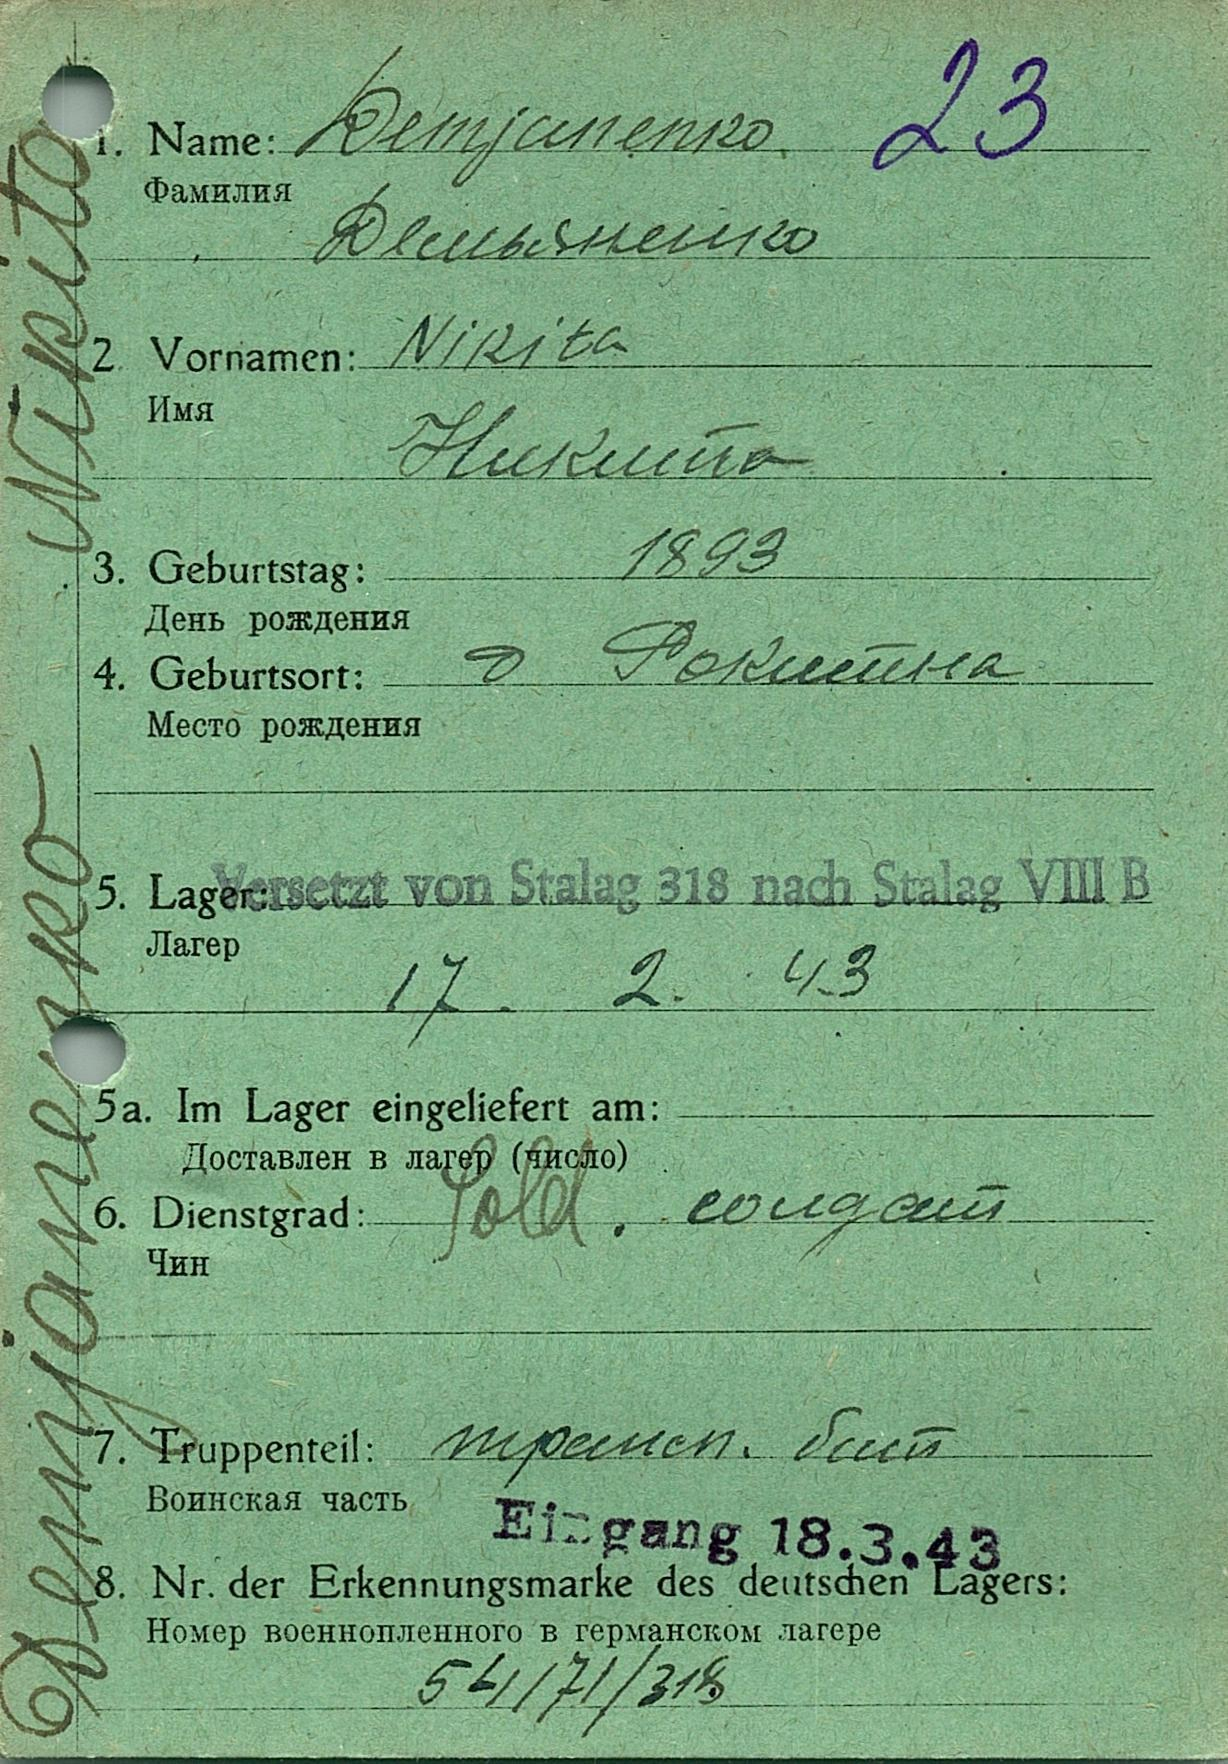 23
1. Name: Demjanenko
Фамилия
Демьяненко
2. Vornamen: Nikita
Имя
Никита
3. Geburtstag: 1893
День рождения
4. Geburtsort: д Рокитна
Место рождения
Versetzt von Stalag 318 nach Stalag VIII B
5. Lager:
Лагер
17. 2. 43
5a. Im Lager eingeliefert am:
Доставлен в лагер (число)
6. Dienstgrad: Sold. солдат
Чин
7. Truppenteil: трансп. бат
Воинская часть
Eingang 18.3.43
8. Nr. der Erkennungsmarke des deutschen Lagers:
Номер военнопленного в германском лагере
54171/318
Demjanenko Nikita